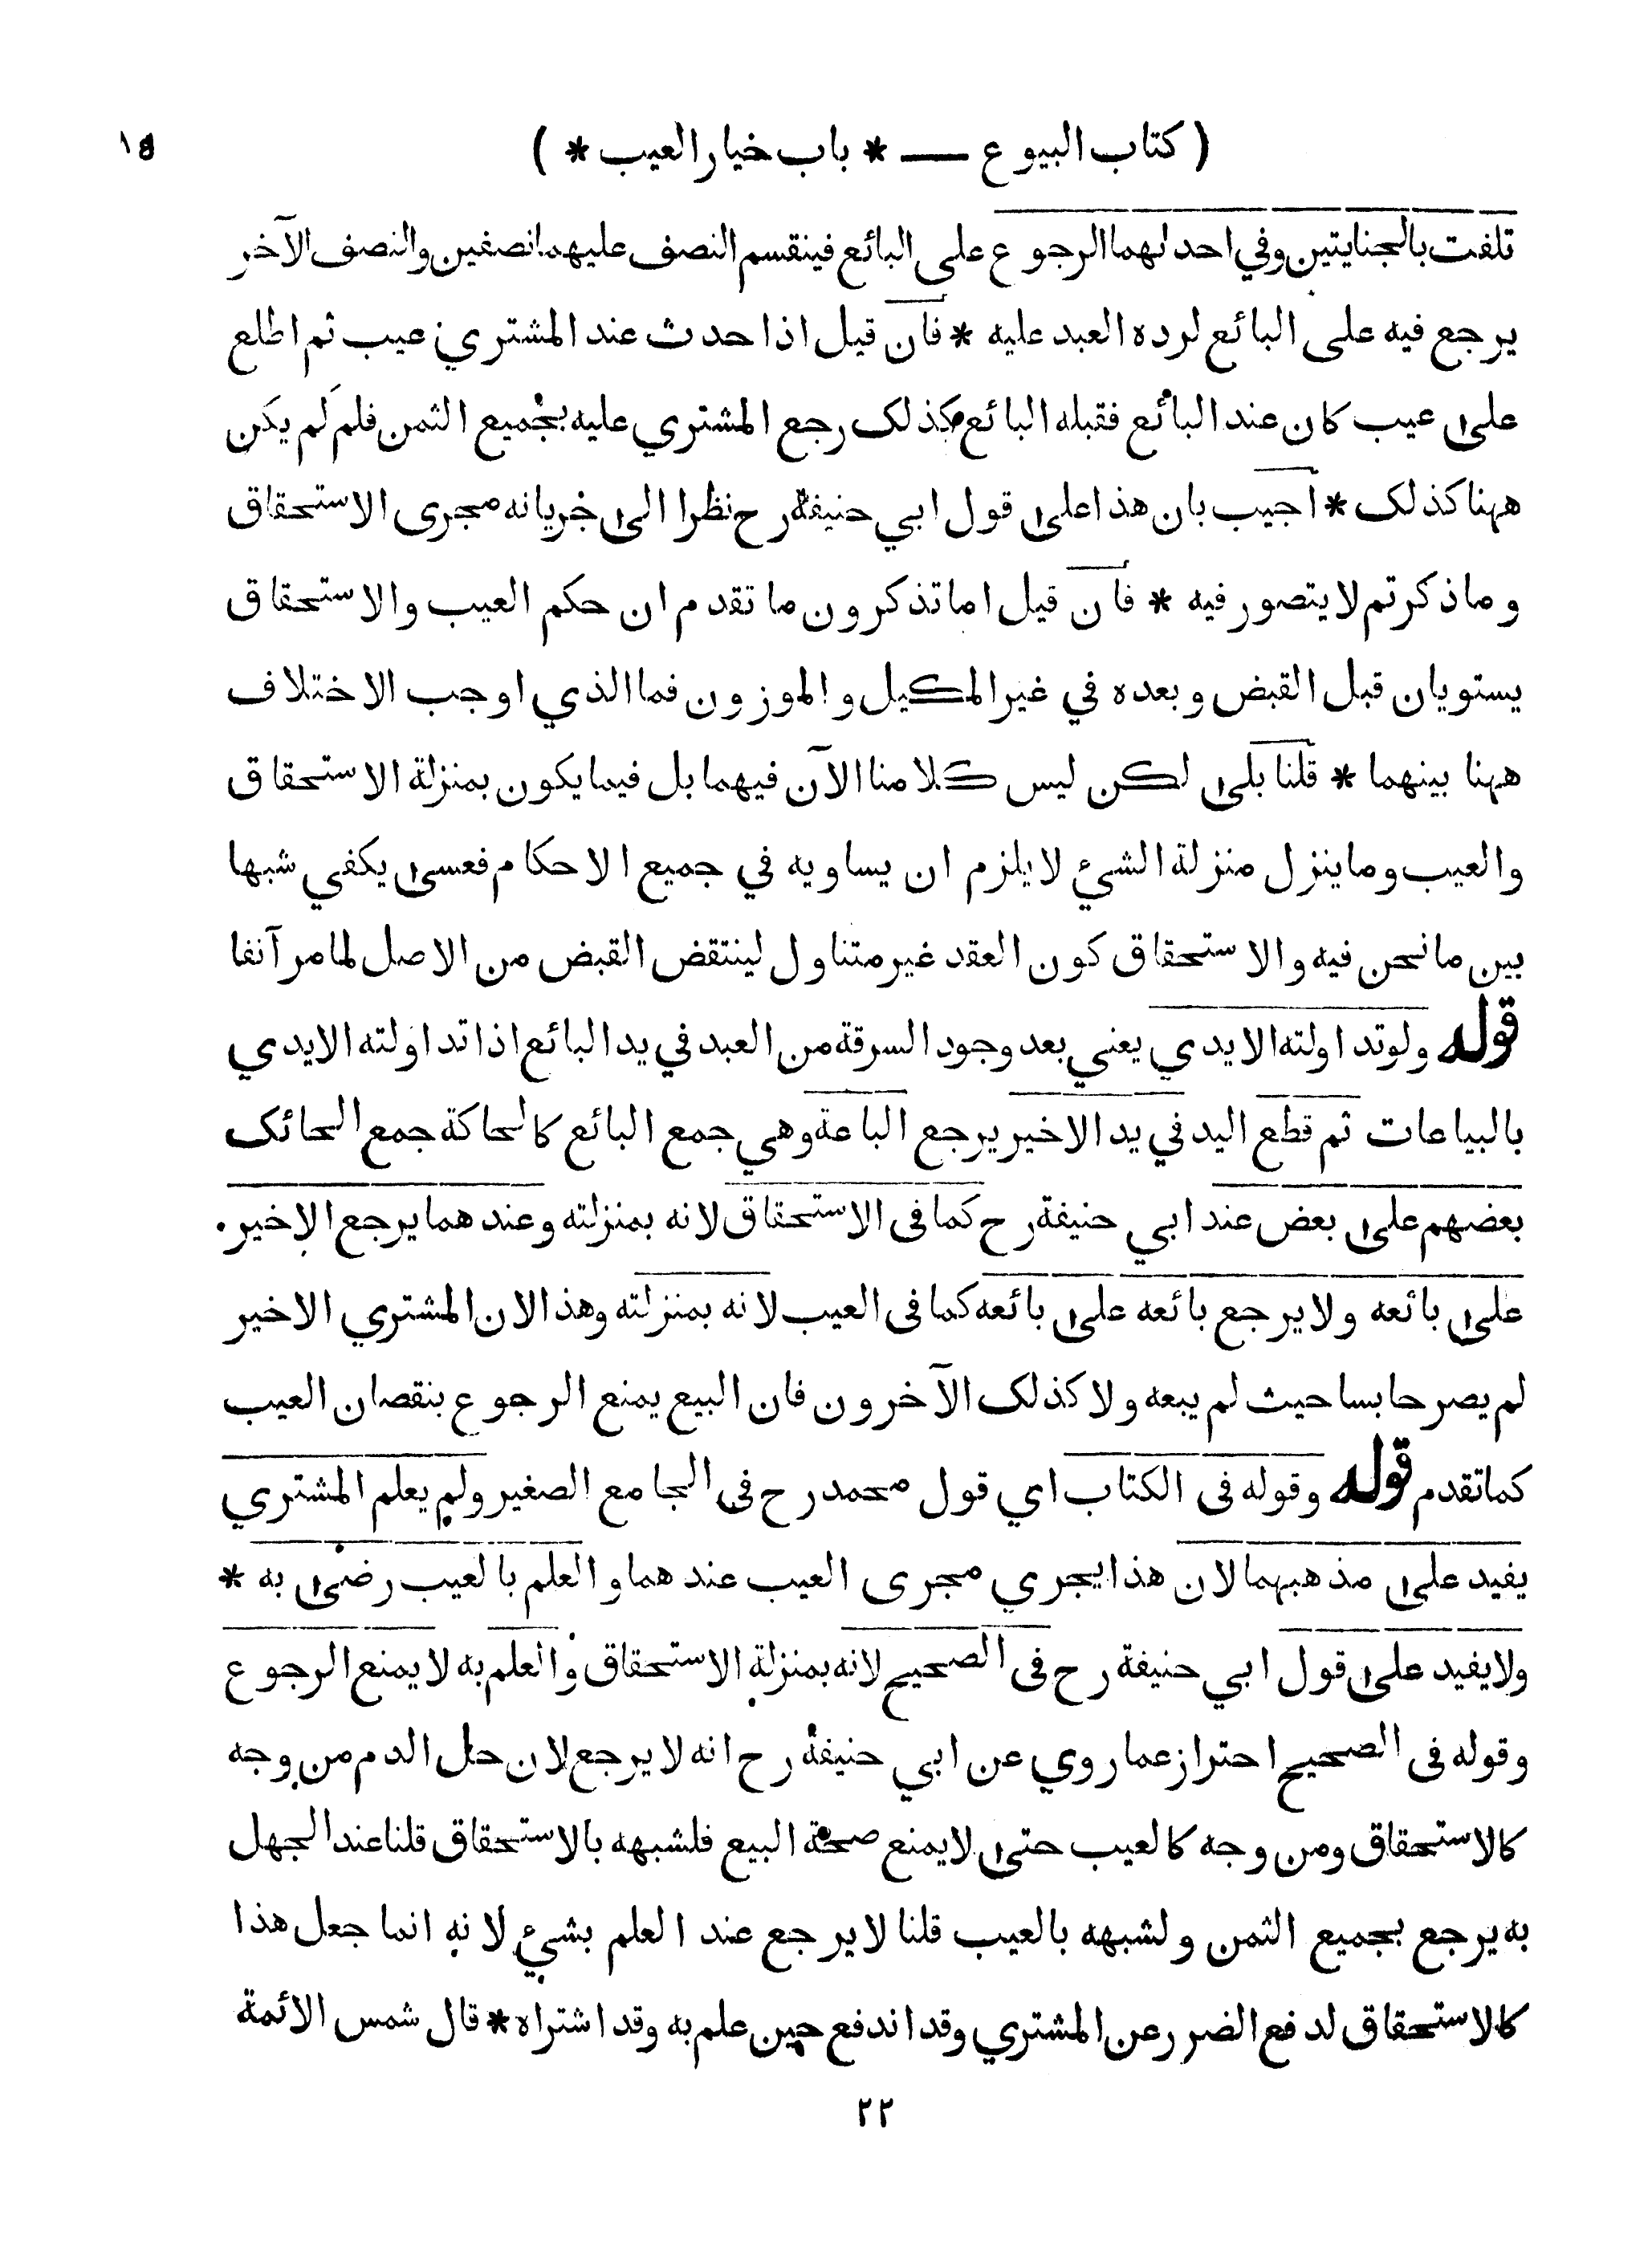 ( كتاب البيوع — * باب خيار العيب * )
تلفت بالجنايتين وفي احدٰهما الرجوع على البائع فينقسم النصف عليهما نصفين والنصف الآخر
يرجع فيه على البائع لرده العبد عليه * فان قيل اذا حدث عند المشتري عيب ثم اطلع
على عيب كان عند البائع فقبله البائع كذلك رجع المشتري عليه بجميع الثمن فلم لم يكن
ههنا كذلك * اجيب بان هذا على قول ابي حنيفة رح نظرا الى جريانه مجرى الاستحقاق
وما ذكرتم لا يتصور فيه * فان قيل اما تذكرون ما تقدم ان حكم العيب والاستحقاق
يستويان قبل القبض وبعده في غير المكيل والموزون فما الذي اوجب الاختلاف
ههنا بينهما * قلنا بلى لكن ليس كلامنا الآن فيهما بل فيما يكون بمنزلة الاستحقاق
والعيب وما ينزل منزلة الشئ لا يلزم ان يساويه في جميع الاحكام فعسى يكفي شبها
بين ما نحن فيه والاستحقاق كون العقد غير متناول لينتقض القبض من الاصل لما مر آنفا
قوله ولو تداولته الايدي يعني بعد وجود السرقة من العبد في يد البائع اذا تداولته الايدي
بالبياعات ثم قطع اليد في يد الاخير يرجع الباعة وهي جمع البائع كالحاكة جمع الحائك
بعضهم على بعض عند ابي حنيفة رح كما فى الاستحقاق لانه بمنزلته وعندهما يرجع الاخير
على بائعه ولا يرجع بائعه على بائعه كما فى العيب لانه بمنزلته وهذا لان المشتري الاخير
لم يصر حابسا حيث لم يبعه ولا كذلك الآخرون فان البيع يمنع الرجوع بنقصان العيب
كما تقدم قوله وقوله فى الكتاب اي قول محمد رح فى الجامع الصغير ولم يعلم المشتري
يفيد على مذهبهما لان هذا يجري مجرى العيب عندهما والعلم بالعيب رضى به *
ولا يفيد على قول ابي حنيفة رح فى الصحيح لانه بمنزلة الاستحقاق والعلم به لا يمنع الرجوع
وقوله فى الصحيح احتراز عما روي عن ابي حنيفة رح انه لا يرجع لان حل الدم من وجه
كالاستحقاق ومن وجه كالعيب حتى لا يمنع صحة البيع فلشبهه بالاستحقاق قلنا عند الجهل
به يرجع بجميع الثمن ولشبهه بالعيب قلنا لا يرجع عند العلم بشئ لانه انما جعل هذا
كالاستحقاق لدفع الضرر عن المشتري وقد اندفع حين علم به وقد اشتراه * قال شمس الائمة
٢٢